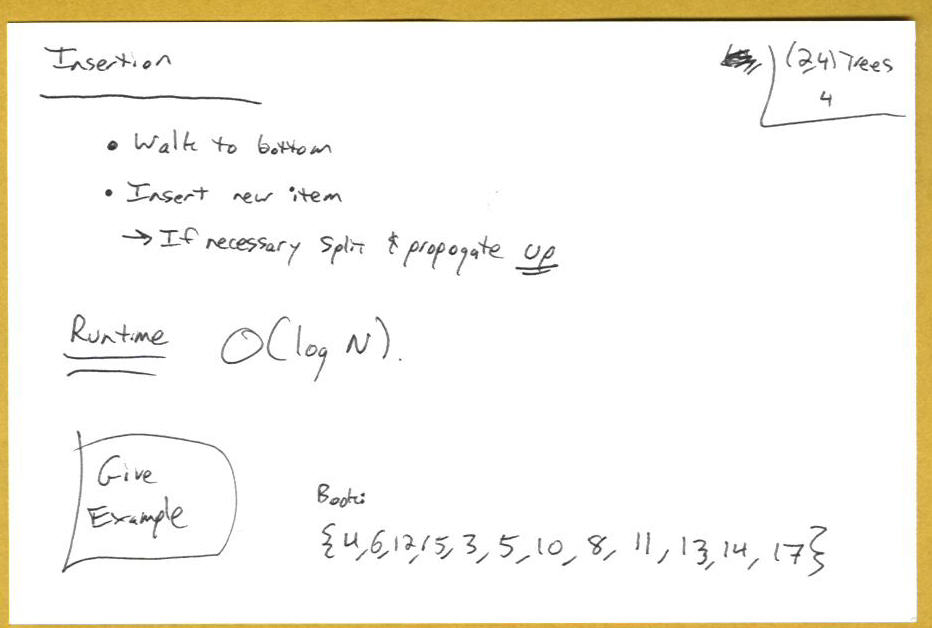 Insertion
(2,4) Trees
4
• Walk to bottom
• Insert new item
→ If necessary split & propogate up
Runtime O(log N).
Give
Example
Book:
{4,6,12,15,3,5,10,8,11,13,14,17}